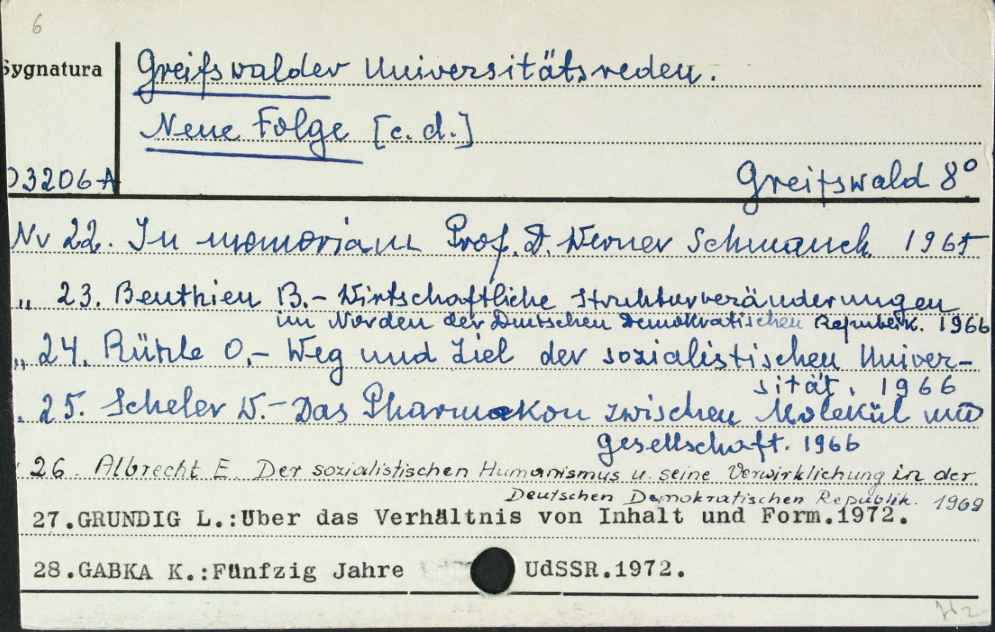 6
Sygnatura
Greifswalder Universitätsreden.
Neue Folge [c.d.]
03206 A
Greifswald 8°
Nr 22. In memoriam Prof. D. Werner Schmauch 1965
„ 23. Benthien B.- Wirtschaftliche Strukturveränderungen
im Norden der Deutschen Demokratischen Republik. 1966
„ 24. Rühle O.- Weg und Ziel der sozialistischen Univer-
sität, 1966
„ 25. Scheler W.- Das Pharmakon zwischen Molekül und
Gesellschaft. 1966
" 26. Albrecht E. Der sozialistischen Humanismus u. seine Verwirklichung in der
Deutschen Demokratischen Republik. 1969
27.GRUNDIG L.:Uber das Verhältnis von Inhalt und Form.1972.
28.GABKA K.:Fünfzig Jahre UdSSR.1972.